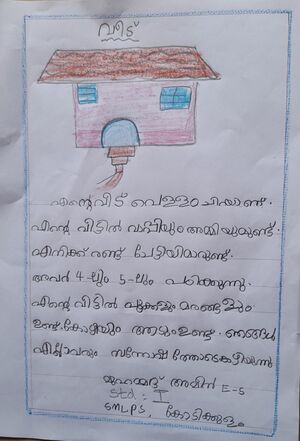 വീട്
എൻ്റെ വീട് വെള്ളം ചിയാണ്.
എൻ്റെ വീട്ടിൽ വാപ്പിയും അമ്മിയുമുണ്ട്.
എനിക്ക് രണ്ട് ചേട്ടിയിമാരുണ്ട്.
അവർ 4-ലും 5-ലും പഠിക്കുന്നു.
എൻ്റെ വീട്ടിൽ പൂക്കളും മരങ്ങളും
ഉണ്ട്. കോഴിയും ആടും ഉണ്ട്. ഞങ്ങൾ
എല്ലാവരും സന്തോഷത്തോടെ കഴിയുന്നു
മുഹമ്മദ് അമീൻ E-S
Std : I
GMLPS, കോടിക്കുളം